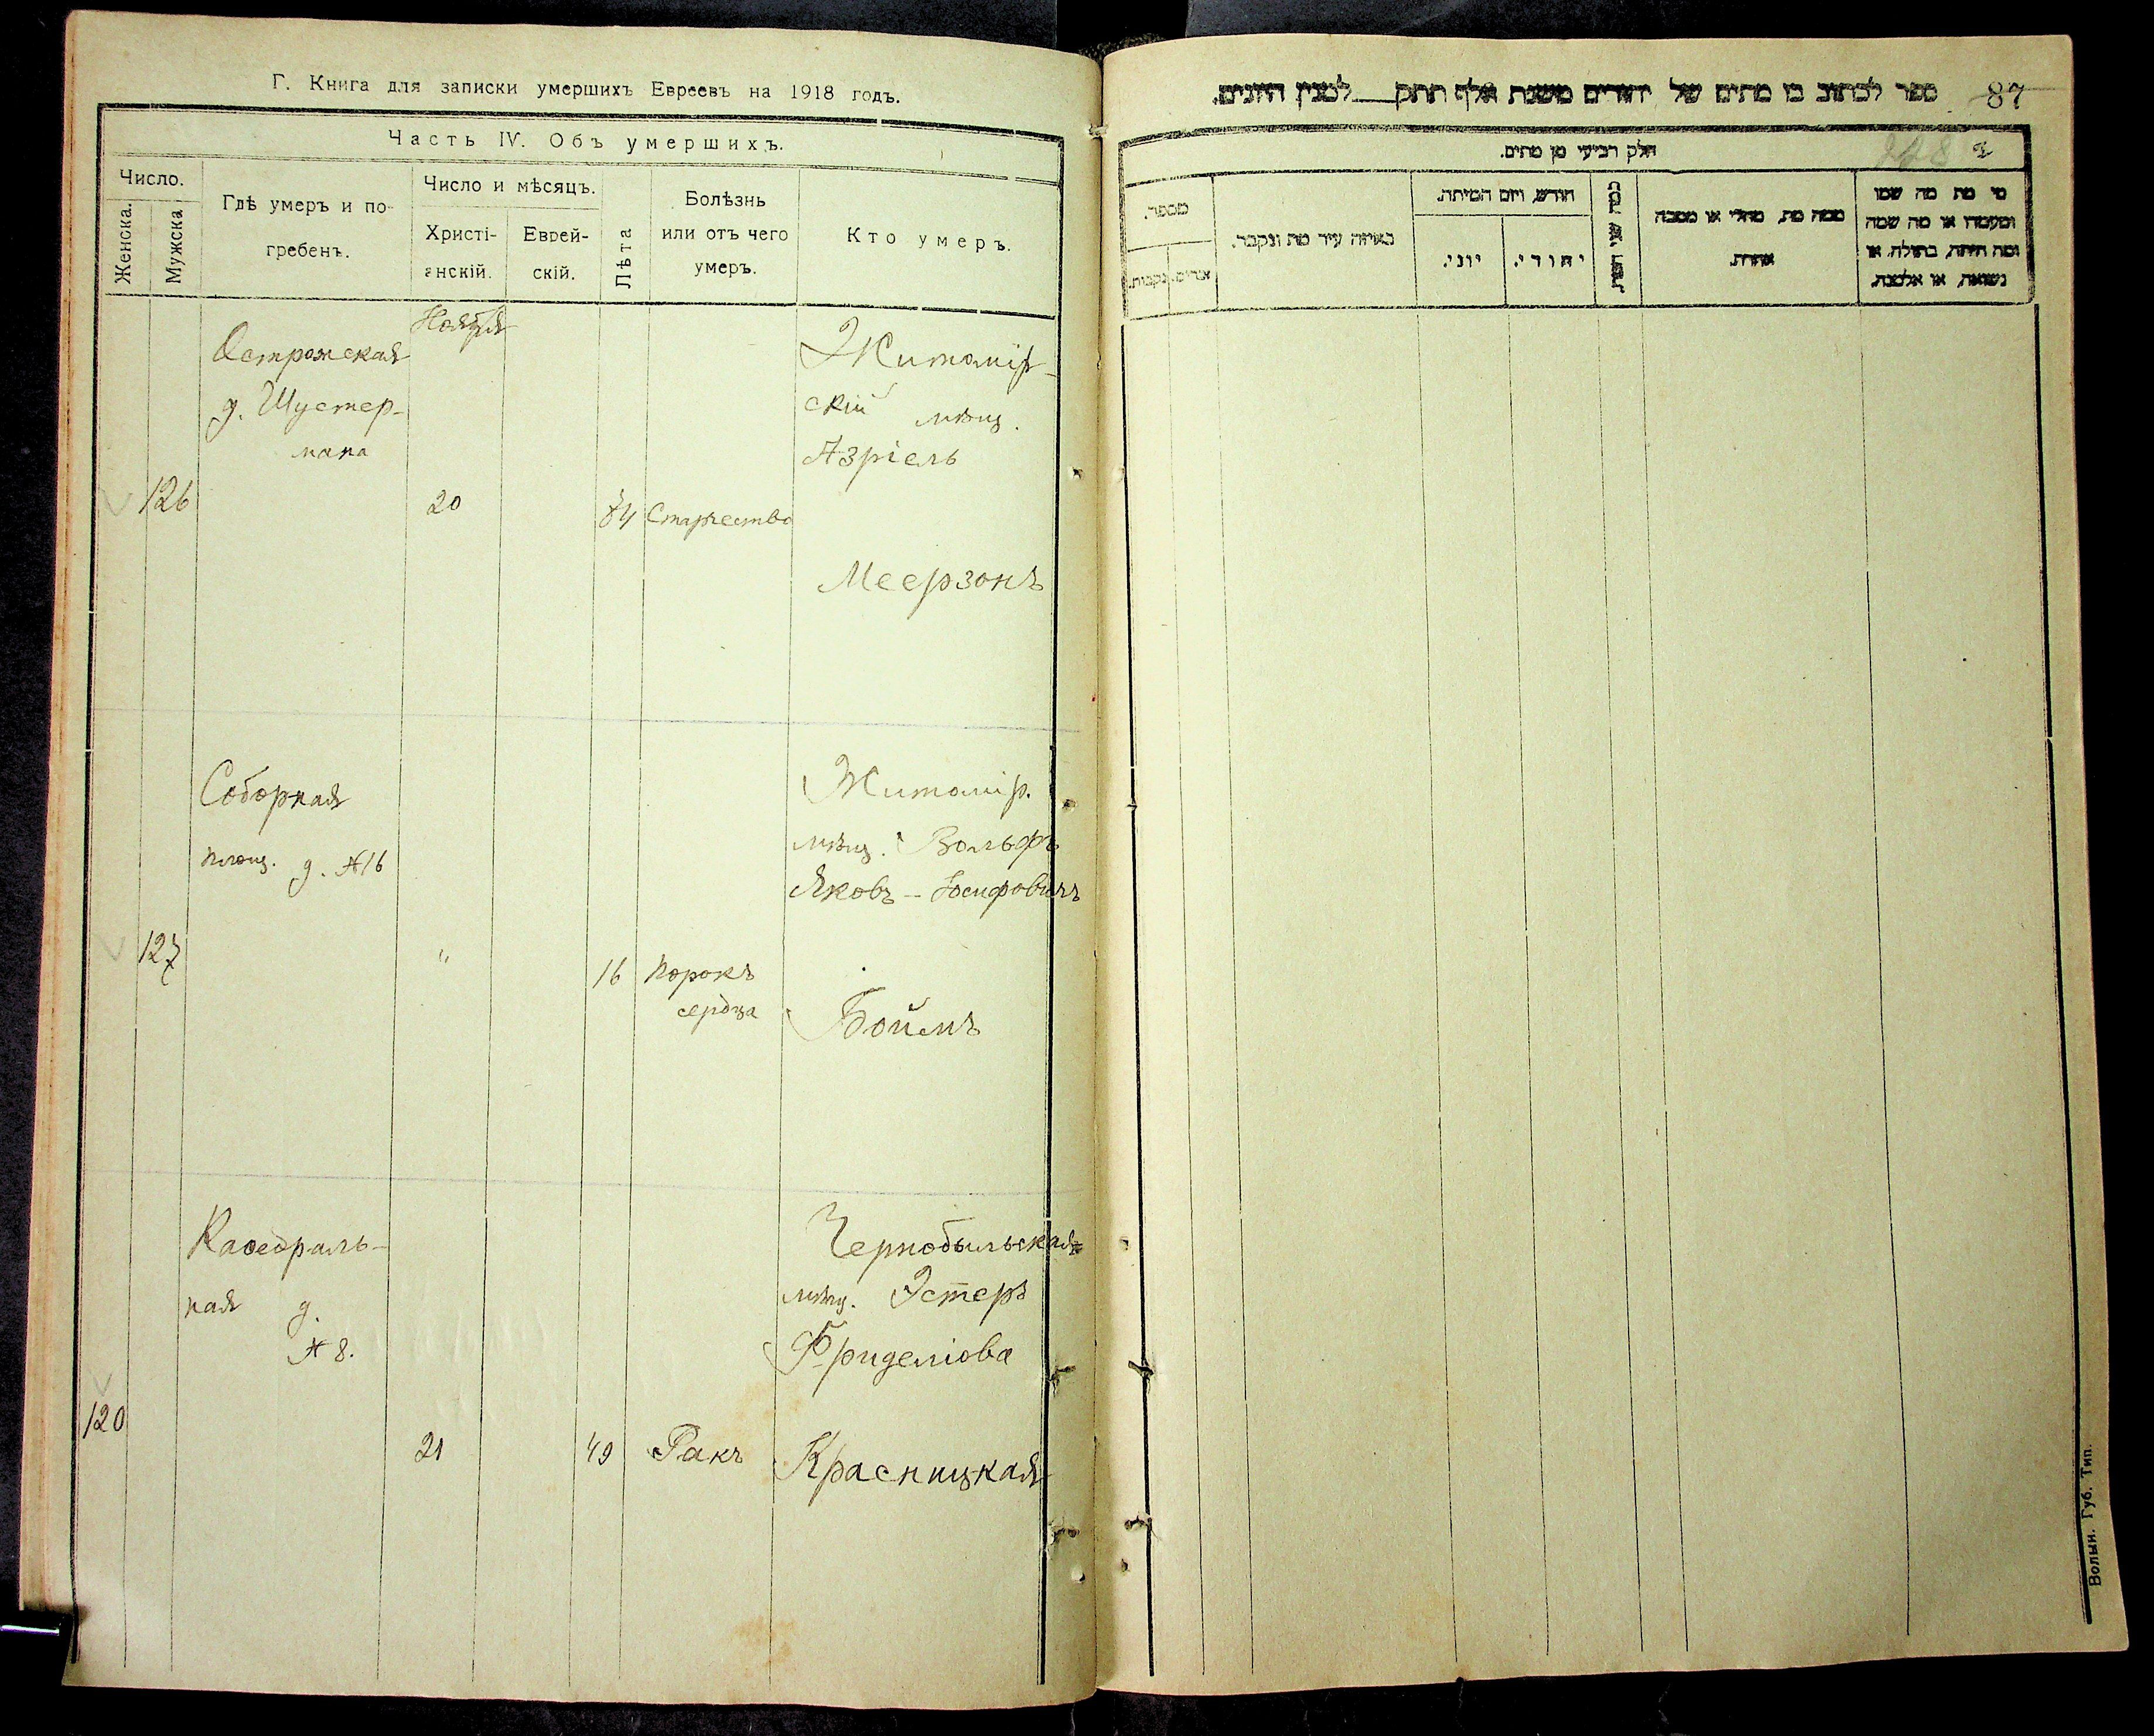 Г. Книга для записки умершихъ Евреевъ на 1918 годъ.
Часть IV. Объ умершихъ.
Число.
Женска.
Мужска
Гдѣ умеръ и по-
гребенъ.
Число и мѣсяцъ.
Христі-
анскій.
Еврей-
скій.
Лѣта
Болѣзнь
или отъ чего
умеръ.
Кто умеръ.
Ноября
Острожская
д. Шустер-
мана
126
20
84
Старчество
Житомір-
скій мѣщ.
Азріель
Меерзонъ
Соборная
площ. д. №16
127
"
16
Порокъ
сердца
Житомір.
мѣщ. Вольфъ
Яковъ-Іосифовичъ
Боймъ
Каѳедраль-
ная д.
№ 8.
120
21
49
Ракъ
Чернобыльская
мѣщ. Эстеръ
Красницкая
ספר לכתוב בו מתים של יהודים משנת אלף תתק למנין היונים.
87
חלק רביעי מן מתים.
מספר.
נקבות.
באיזה עיר מת ונקבר.
חודש, ויום המיתה.
יוני.
יהודי.
ממה מת, מחלי או מסבה
אחרת.
מי מת מה שמו
ומעמדו או מה שמה
ומה היתה, בתולה, או
נשואה, או אלמנה.
Волын. Губ. Тип.